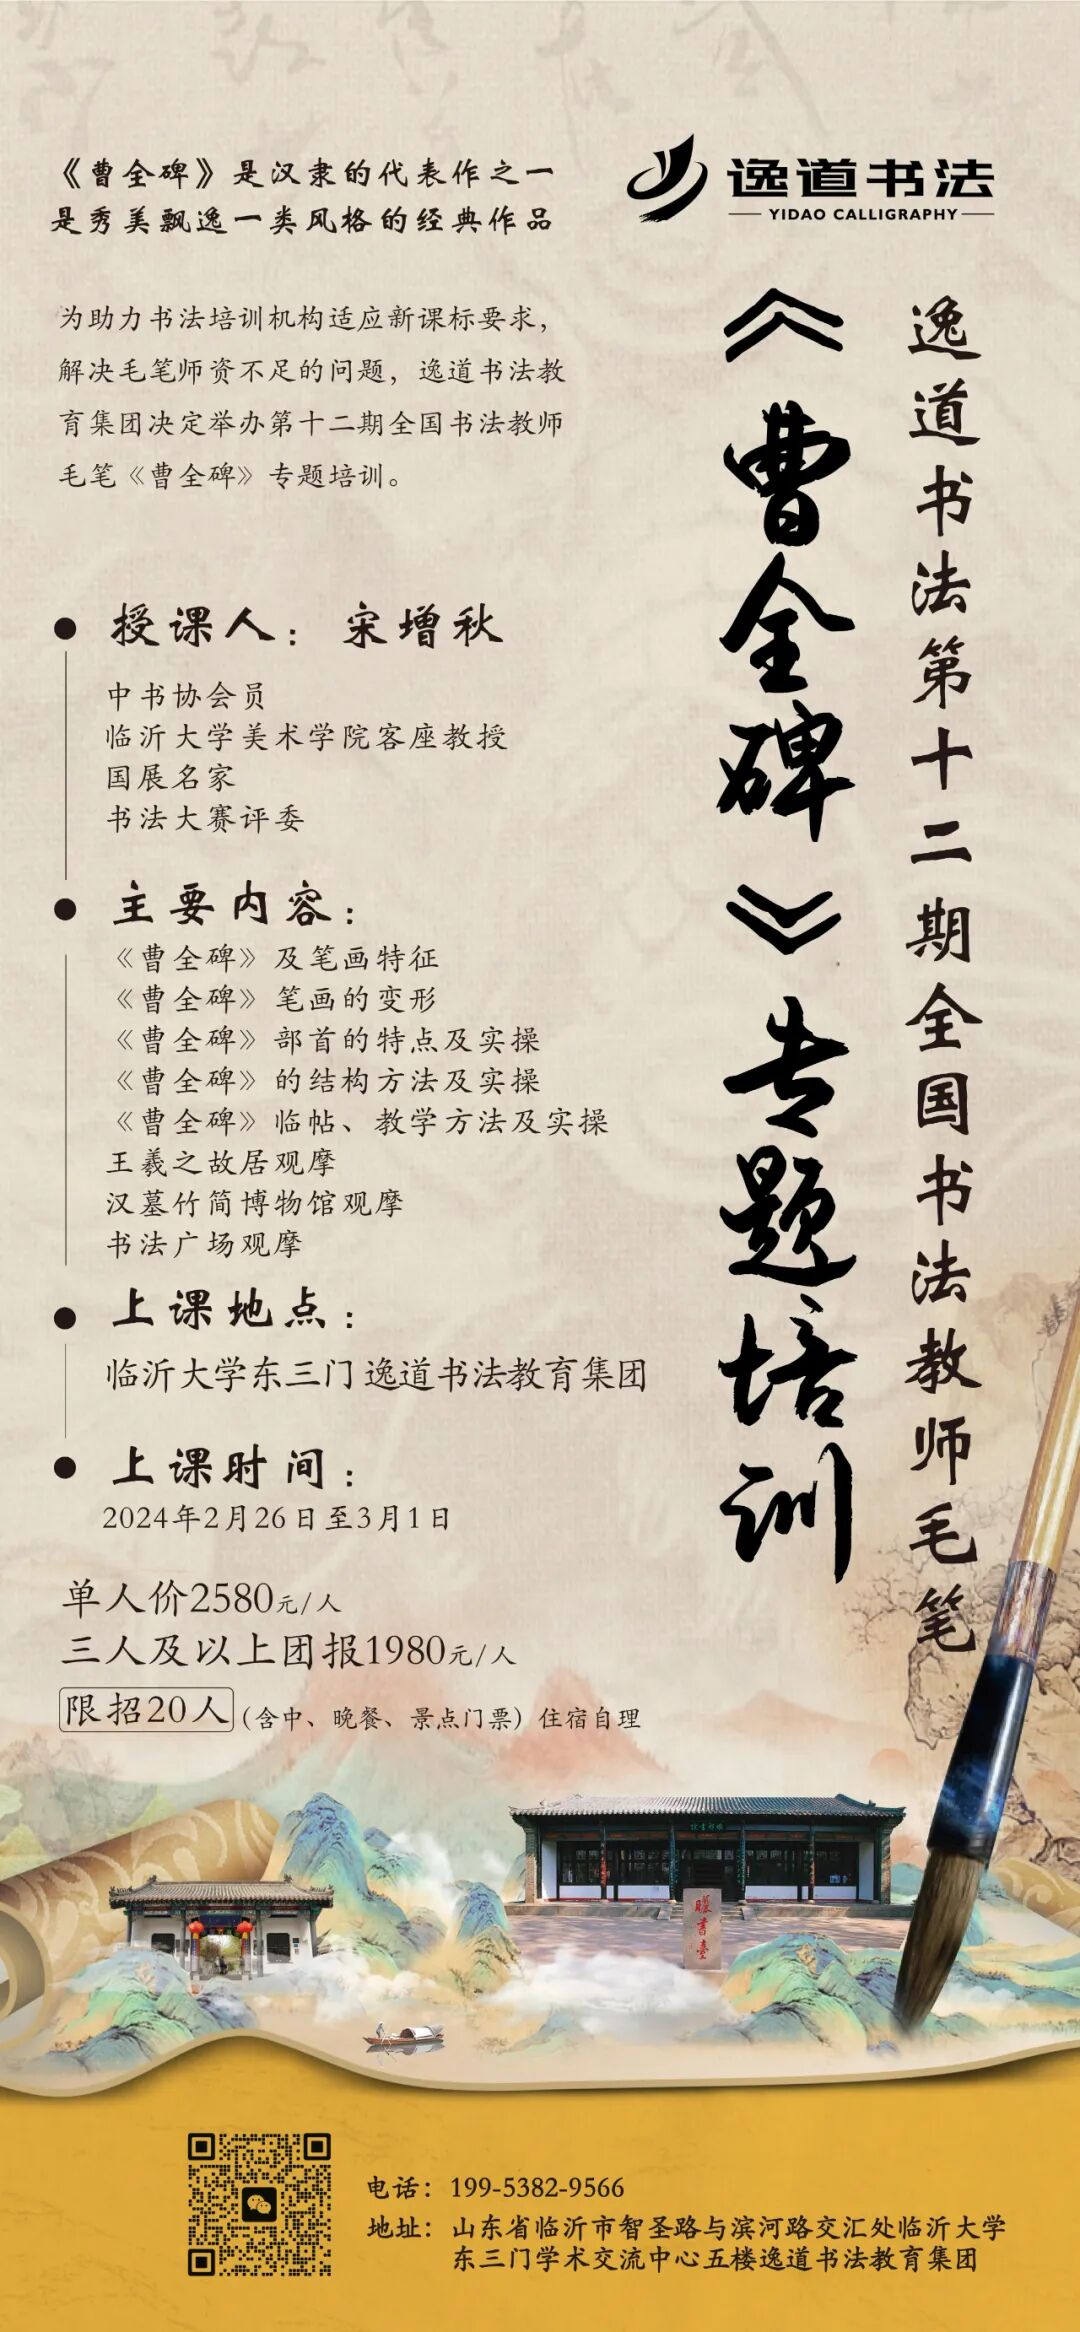 《曹全碑》是汉隶的代表作之一
是秀美飘逸一类风格的经典作品
逸道书法
YIDAO CALLIGRAPHY
逸道书法第十二期全国书法教师毛笔
《曹全碑》专题培训
为助力书法培训机构适应新课标要求，
解决毛笔师资不足的问题，逸道书法教
育集团决定举办第十二期全国书法教师
毛笔《曹全碑》专题培训。
授课人：宋增秋
中书协会员
临沂大学美术学院客座教授
国展名家
书法大赛评委
主要内容：
《曹全碑》及笔画特征
《曹全碑》笔画的变形
《曹全碑》部首的特点及实操
《曹全碑》的结构方法及实操
《曹全碑》临帖、教学方法及实操
王羲之故居观摩
汉墓竹简博物馆观摩
书法广场观摩
上课地点：
临沂大学东三门 逸道书法教育集团
上课时间：
2024年2月26日至3月1日
单人价2580元/人
三人及以上团报1980元/人
限招20人（含中、晚餐、景点门票）住宿自理
曬書臺
电话：199-5382-9566
地址：山东省临沂市智圣路与滨河路交汇处临沂大学
东三门学术交流中心五楼逸道书法教育集团